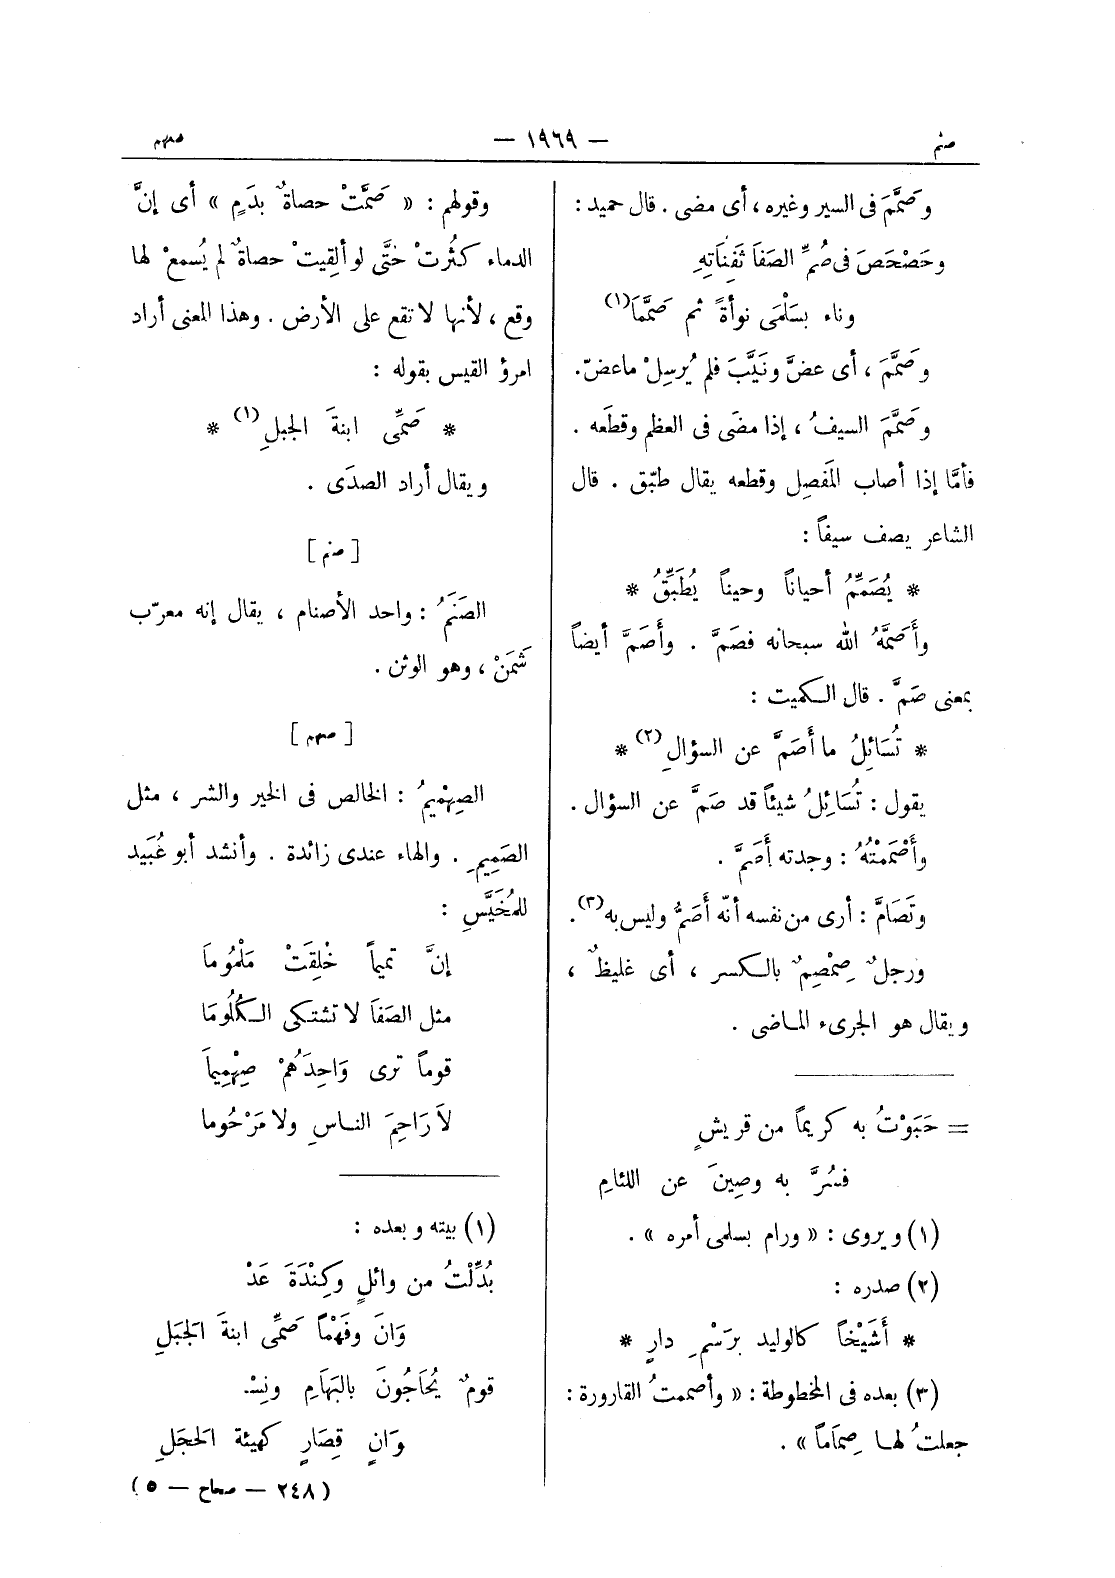 صنم
— ١٩٦٩ —
صهم
وصَمَّمَ فى السير وغيره ، أى مضى . قال حميد :
وحَصْحَصَ فى صُمِّ الصَفَا ثَفِنَاتِهِ
وناء بسَلْمَى نوأةً ثم صَمَّمَا (١)
وصَمَّمَ ، أى عضَّ ونَيَّبَ فلم يُرسِلْ ما عضّ.
وصَمَّمَ السيفُ ، إذا مضَى فى العظم وقطَعه .
فأمَّا إذا أصاب المَفصِل وقطعه يقال طبّق . قال
الشاعر يصف سيفاً :
* يُصَمِّمُ أحياناً وحيناً يُطَبِّقُ *
وأَصَمَّهُ الله سبحانه فصَمَّ . وأَصَمَّ أيضاً
بمعنى صَمَّ . قال الكميت :
* تُسَائِلُ ما أَصَمَّ عن السؤالِ (٢) *
يقول : تُسَائِلُ شيئاً قد صَمَّ عن السؤال .
وأَصْمَمْتُهُ : وجدته أَصَمَّ .
وتَصَامَّ : أرى من نفسه أنّه أَصَمُّ وليس به (٣).
ورجلٌ صِمْصِمٌ بالكسر ، أى غليظٌ ،
ويقال هو الجرىء الماضى .
= حَبَوْتُ به كريماً من قريشٍ
فسُرَّ به وصِينَ عن اللئامِ
(١) ويروى : « ورام بسلمى أمره » .
(٢) صدره :
* أَشَيْخاً كالوليد برَسْمِ دارٍ *
(٣) بعده فى المخطوطة : « وأصممتُ القارورة :
جعلتُ لها صِمَاماً » .
وقولهم : « صَمَّتْ حصاةٌ بدَمٍ » أى إنَّ
الدماء كثُرتْ حتَّى لو ألقيتْ حصاةٌ لم يُسمعْ لها
وقع ، لأنها لا تقع على الأرض . وهذا المعنى أراد
امرؤ القيس بقوله :
* صَمِّى ابنةَ الجبلِ (١) *
ويقال أراد الصدَى .
[ صنم ]
الصَنَمُ : واحد الأصنام ، يقال إنه معرّب
شَمَنْ ، وهو الوثن .
[ صهم ]
الصِهْمِيمُ : الخالص فى الخير والشر ، مثل
الصَمِيمِ . والهاء عندى زائدة . وأنشد أبو عُبَيد
للمُخَيَّسِ :
إنَّ تميماً خُلِقَتْ مَلْمُومَا
مثل الصَفَا لا تشتكى الكُلُومَا
قوماً ترى وَاحِدَهُمْ صِهْمِيمَا
لاَ رَاحِمَ الناسِ ولا مَرْحُوما
(١) بيته وبعده :
بُدِّلْتُ من وائلٍ وكِنْدَةَ عَدْ
وَانَ وفَهْمًا صَمِّى ابنةَ الجَبَلِ
قومٌ يُحَاجُونَ بالبِهَامِ ونِسْـ
ـوَانٍ قِصَارٍ كهيئة الحَجَلِ
( ٢٤٨ — صحاح — ٥ )